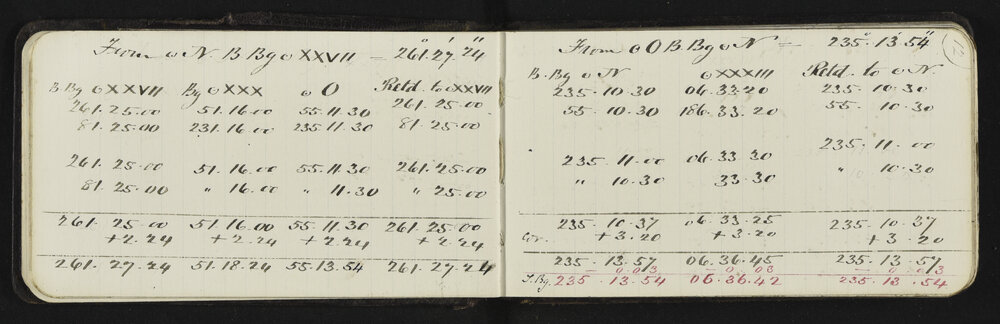 From o N. B Bg o XXVII = 261°.27'.24"
B Bg o XXVII Bg o XXX o O Retd. to o XXVII
261.25.00 51.16.00 55.11.30 261.25.00
81.25.00 231.16.00 235.11.30 81.25.00
261.25.00 51.16.00 55.11.30 261.25.00
81.25.00 " 16.00 " 11.30 " 25.00
261.25.00 51.16.00 55.11.30 261.25.00
+2.24 +2.24 +2.24 +2.24
261.27.24 51.18.24 55.13.54 261.27.24
From o O B Bg o N = 235°.13'.54"
12
B. Bg o N o XXXIII Retd. to o N.
235.10.30 06.33.20 235.10.30
55.10.30 186.33.20 55.10.30
235.11.00
235.11.00 06.33.30 " 10.30
" 10.30 33.30
235.10.37 06.33.25 235.10.37
Cor. +3.20 +3.20 +3.20
235.13.57 06.36.45 235.13.57
— 0.03 — 0.03 — 0.03
T. Bg. 235.13.54 06.36.42 235.13.54